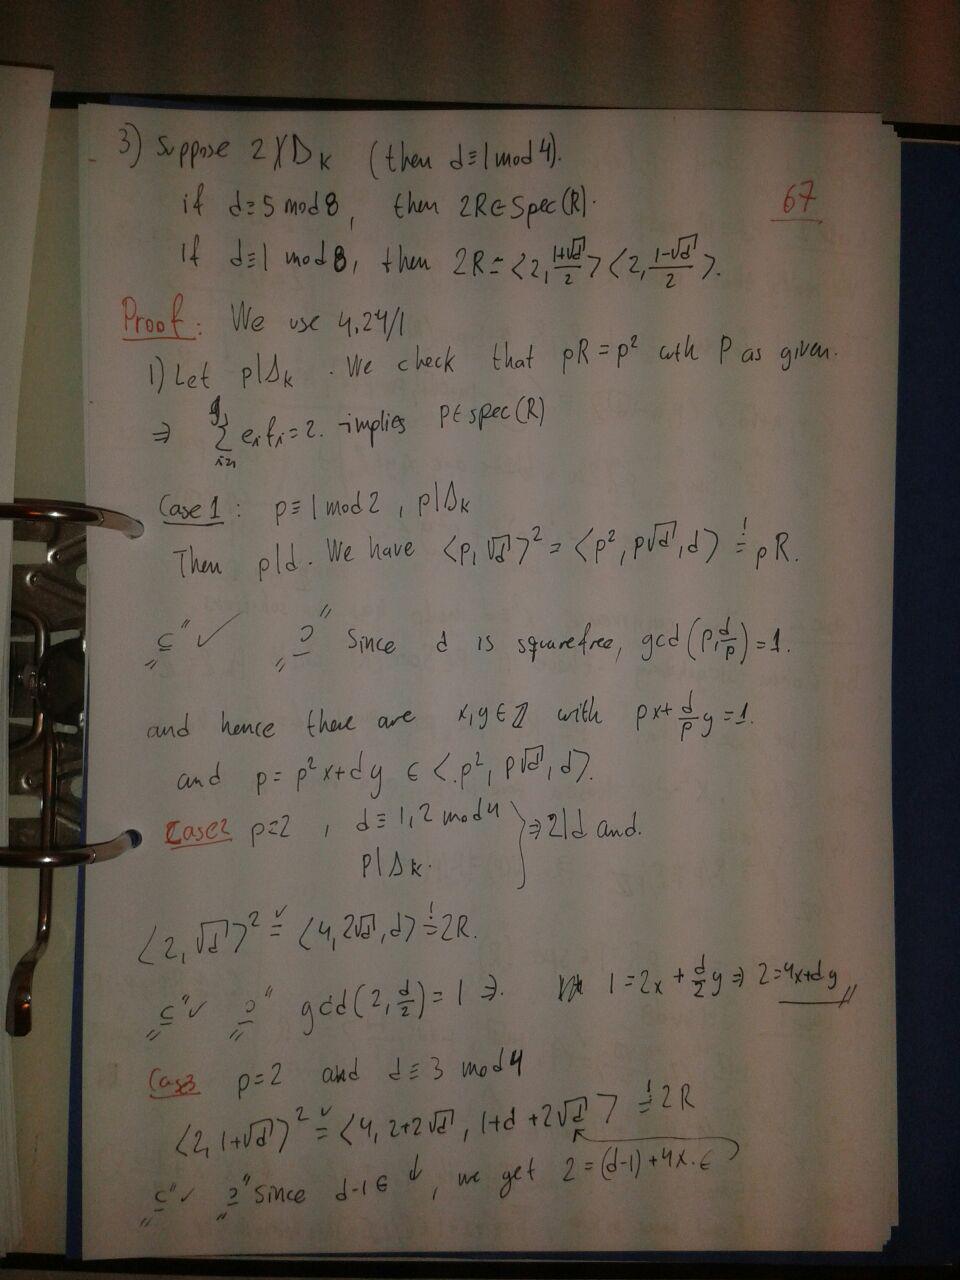 3) Suppose 2∤D_K (then d≡1 mod 4).
if d≡5 mod 8, then 2R∈Spec(R).
67
If d≡1 mod 8, then 2R=<2, (1+√d)/2><2, (1-√d)/2>.
Proof: We use 4.24/1
1) Let p|Δ_K. We check that pR=P² with P as given.
⇒ ∑_{i=1}^{g} e_i f_i=2. implies P∈spec(R)
Case 1: p≡1 mod 2, p|Δ_K
Then p|d. We have <p,√d>² = <p², p√d, d> =! pR.
„⊆" ✓ „⊇" Since d is squarefree, gcd(p, d/p)=1.
and hence there are x,y∈ℤ with px+d/p y=1.
and p=p²x+dy ∈ <p², p√d, d>.
Case2 p=2, d≡1,2 mod 4
p|Δ_K.
} ⇒2|d and.
<2,√d>² =✓ <4,2√d,d> =! 2R.
„⊆"✓ „⊇" gcd(2, d/2)=1 ⇒. 1=2x+d/2 y ⇒ 2=4x+dy
Case3 p=2 and d≡3 mod 4
<2,1+√d>² =✓ <4, 2+2√d, 1+d+2√d> =! 2R
„⊆"✓ „⊇" Since d-1∈ ↓, we get 2=(d-1)+4x.∈